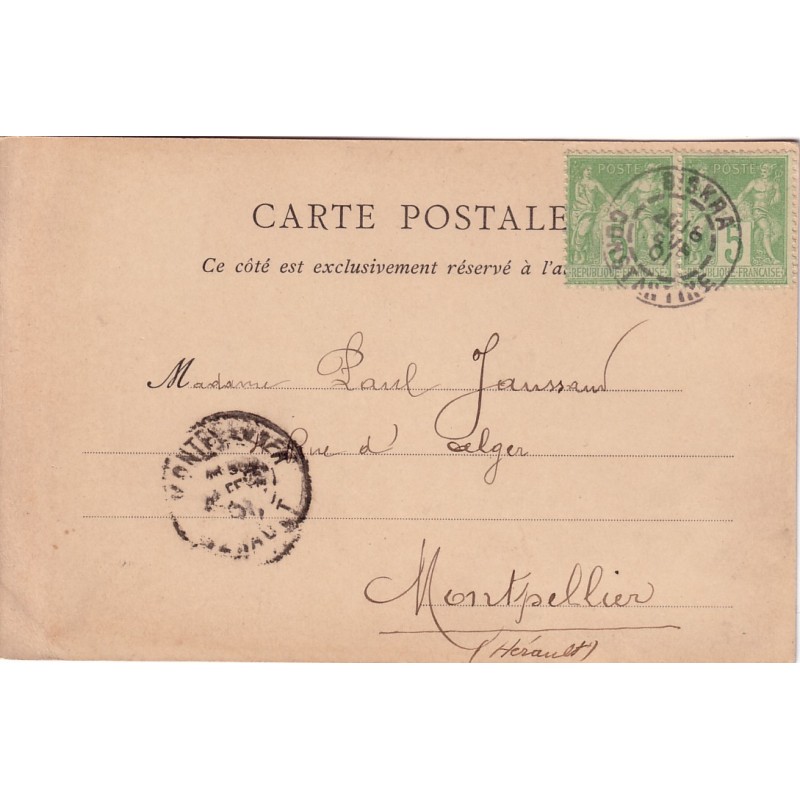 CARTE POSTALE
Ce côté est exclusivement réservé à l'a
POSTE POSTE
5
REPUBLIQUE FRANÇAISE REPUBLIQUE FRANÇAISE
BISKRA
CONSTANTINE
Madame Paul Jaussaud
Rue d'Alger
MONTPELLIER
HERAULT
Montpellier
(Hérault)